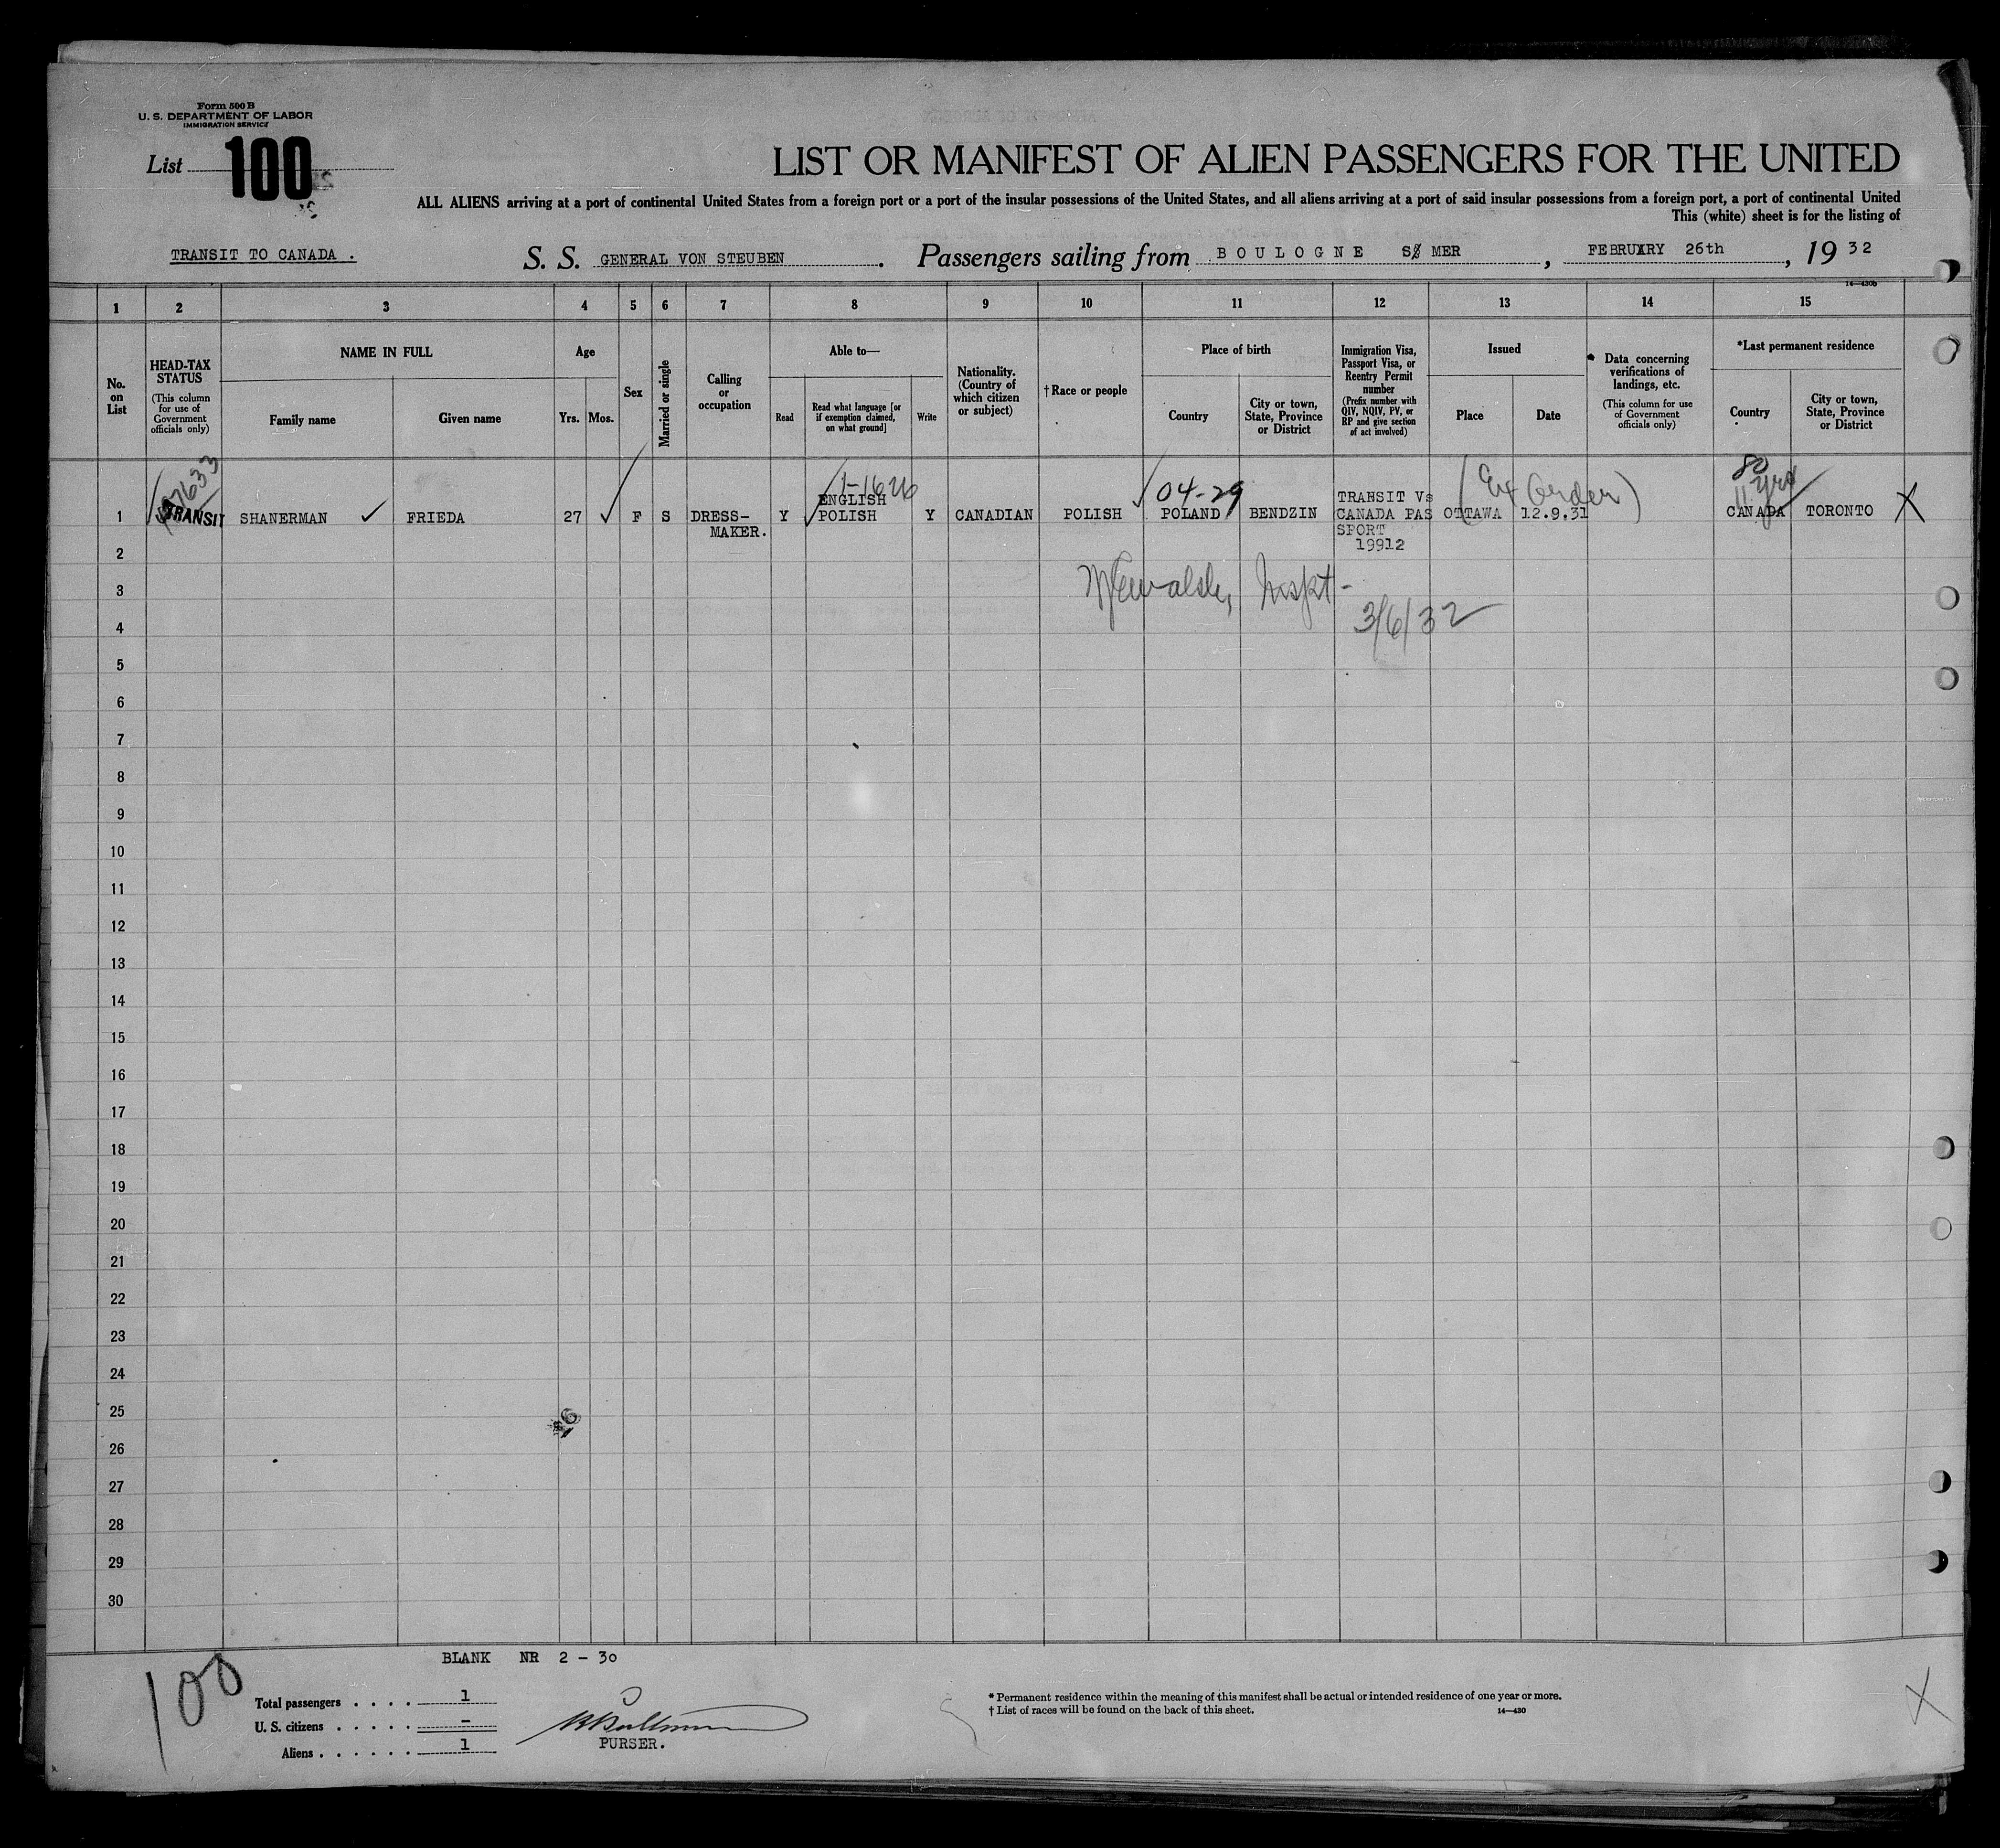 Form 500 B
U. S. DEPARTMENT OF LABOR
IMMIGRATION SERVICE
List 100
LIST OR MANIFEST OF ALIEN PASSENGERS FOR THE UNITED
ALL ALIENS arriving at a port of continental United States from a foreign port or a port of the insular possessions of the United States, and all aliens arriving at a port of said insular possessions from a foreign port, a port of continental United
This (white) sheet is for the listing of
TRANSIT TO CANADA .
S. S. GENERAL VON STEUBEN . Passengers sailing from BOULOGNE S/ MER , FEBRUARY 26th , 19 32
14—430b
1 2 3 4 5 6 7 8 9 10 11 12 13 14 15
No. on List
HEAD-TAX STATUS
(This column for use of Government officials only)
NAME IN FULL
Family name
Given name
Age
Yrs. Mos.
Sex
Married or single
Calling or occupation
Able to—
Read
Read what language [or if exemption claimed, on what ground]
Write
Nationality. (Country of which citizen or subject)
† Race or people
Place of birth
Country
City or town, State, Province or District
Immigration Visa, Passport Visa, or Reentry Permit number
(Prefix number with QIV, NQIV, PV, or RP and give section of act involved)
Issued
Place
Date
* Data concerning verifications of landings, etc.
(This column for use of Government officials only)
*Last permanent residence
Country
City or town, State, Province or District
1-1626
04-29
(Ex Order)
11 yrs
1 TRANSIT SHANERMAN ✓ FRIEDA 27 ✓ F S DRESS-MAKER. Y ENGLISH POLISH Y CANADIAN POLISH POLAND BENDZIN TRANSIT Vs CANADA PAS SPORT 19912 OTTAWA 12.9.31 CANADA TORONTO X
2
3
Inspt-
3/6/32
4
5
6
7
8
9
10
11
12
13
14
15
16
17
18
19
20
21
22
23
24
25
26
27
28
29
30
BLANK NR 2 - 30
100
Total passengers . . . . 1
U. S. citizens . . . . . -
Aliens . . . . . . 1
PURSER.
* Permanent residence within the meaning of this manifest shall be actual or intended residence of one year or more.
† List of races will be found on the back of this sheet.
14—430
X